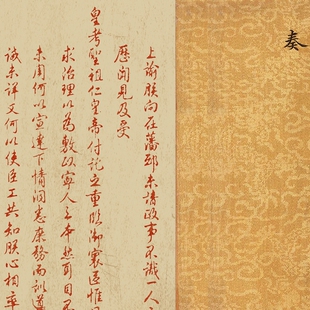 奏
上諭朕向在藩邸未諳政事不識一人
歷聞見及受
皇考聖祖仁皇帝付託之重臨御寰區惟日
求治理以為敷政寧人之本然耳目不
未周何以宣達下情洞悉庶務而訓導
誠未詳又何以使臣工共知朕心相率